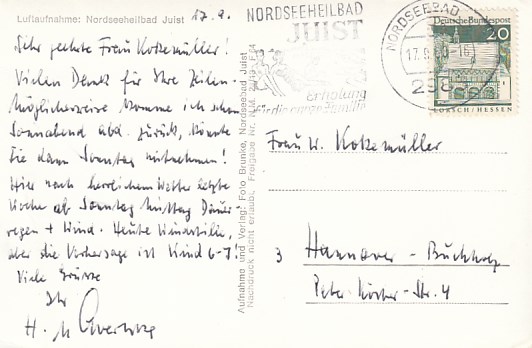 Luftaufnahme: Nordseeheilbad Juist 17.9.
Sehr geehrte Frau Kotzemüller!
Vielen Dank für Ihre Zeilen.
Möglicherweise komme ich schon
Sonnabend abd. zurück, könnte
Sie dann Sonntag mitnehmen!
Hier nach herrlichem Wetter letzte
Woche ab Sonntag Mittag Dauer-
regen + Wind. Heute Windstille,
aber die Vorhersage ist Wind 6-7!
Viele Grüsse
Ihr
H.
Aufnahme und Verlag: Foto Brunke, Nordseebad Juist
Nachdruck nicht erlaubt, Freigabe Nr.
NORDSEEHEILBAD
JUIST
Erholung
für die ganze Familie
NORDSEEBAD
17.9.
298
Deutsche Bundespost
20
LORSCH/HESSEN
Frau W. Kotzemüller
3 Hannover-Buchholz
Peter-Köster-Str. 4